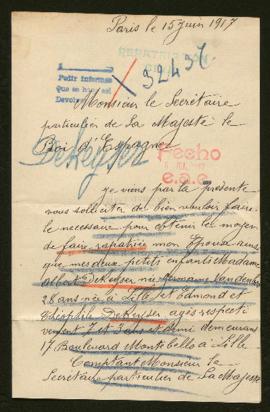 Paris le 15 juin 1917
REPATRIACION
32457
Pedir informes
Que se han
Devolver
Monsieur le Secrétaire
particulier de Sa Majesté le
Roi d'Espagne
DeKeyser
Hecho
e.a.c
je viens par la présente
vous solliciter de bien vouloir faire
le necessaire pour obtenir le moyen
de faire rapatrier mon épouse ainsi
que mes deux petits enfants Madame
DeKeyser née Vanden
28 ans née à Lille et Edmond et
Théophile DeKeyser agés respecti
vement 7 et 3 ans et demi demeurant
17 Boulevard Montebello à Lille
Comptant Monsieur le
Secrétaire particulier de Sa Majesté